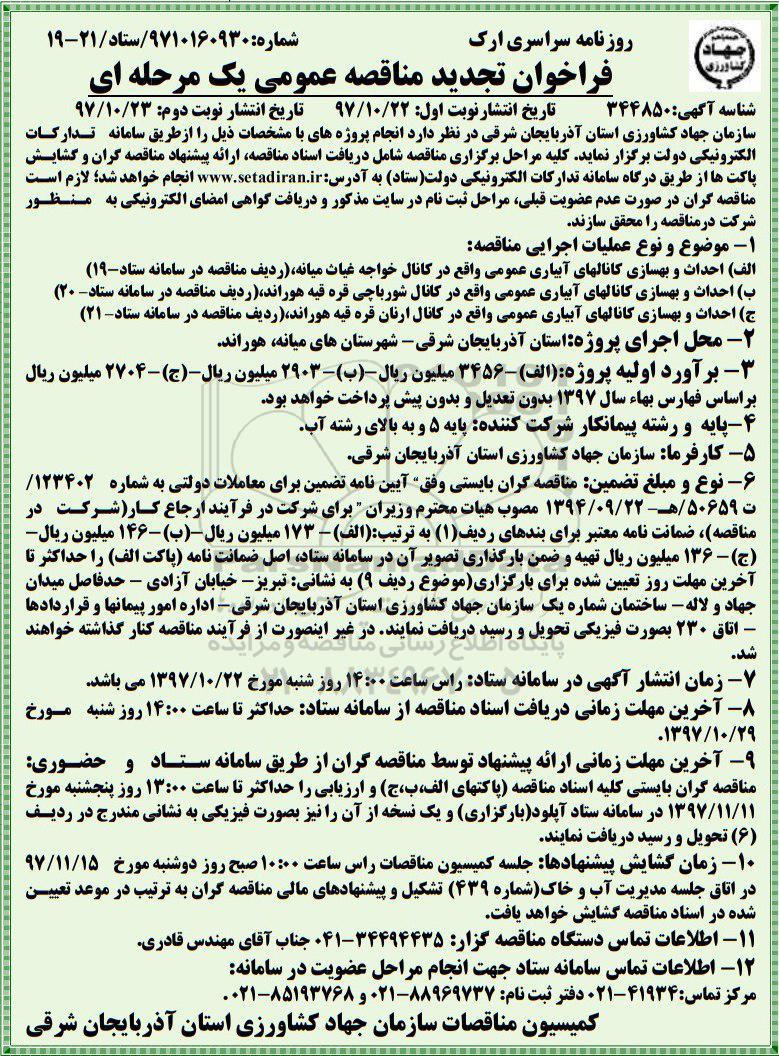 روزنامه سراسری ارک
شماره:9710160930/ستاد/21-19
جهاد
کشاورزی
فراخوان تجدید مناقصه عمومی یک مرحله ای
شناسه آگهی:344850 تاریخ انتشار نوبت اول: 97/10/22 تاریخ انتشار نوبت دوم: 97/10/23
سازمان جهاد کشاورزی استان آذربایجان شرقی در نظر دارد انجام پروژه های با مشخصات ذیل را ازطریق سامانه تدارکات
الکترونیکی دولت برگزار نماید. کلیه مراحل برگزاری مناقصه شامل دریافت اسناد مناقصه، ارائه پیشنهاد مناقصه گران و گشایش
پاکت ها از طریق درگاه سامانه تدارکات الکترونیکی دولت(ستاد) به آدرس:www.setadiran.ir انجام خواهد شد؛ لازم است
مناقصه گران در صورت عدم عضویت قبلی، مراحل ثبت نام در سایت مذکور و دریافت گواهی امضای الکترونیکی به منظور
شرکت درمناقصه را محقق سازند.
1- موضوع و نوع عملیات اجرایی مناقصه:
الف) احداث و بهسازی کانالهای آبیاری عمومی واقع در کانال خواجه غیاث میانه،(ردیف مناقصه در سامانه ستاد-19)
ب) احداث و بهسازی کانالهای آبیاری عمومی واقع در کانال شورباچی قره قیه هوراند،(ردیف مناقصه در سامانه ستاد- 20)
ج) احداث و بهسازی کانالهای آبیاری عمومی واقع در کانال ارنان قره قیه هوراند،(ردیف مناقصه در سامانه ستاد- 21)
2- محل اجرای پروژه:استان آذربایجان شرقی- شهرستان های میانه، هوراند.
3- برآورد اولیه پروژه:(الف)-3456 میلیون ریال-(ب)-2903 میلیون ریال-(ج)-2704 میلیون ریال
براساس فهارس بهاء سال 1397 بدون تعدیل و بدون پیش پرداخت خواهد بود.
4-پایه و رشته پیمانکار شرکت کننده: پایه 5 و به بالای رشته آب.
5- کارفرما: سازمان جهاد کشاورزی استان آذربایجان شرقی.
6- نوع و مبلغ تضمین: مناقصه گران بایستی وفق" آیین نامه تضمین برای معاملات دولتی به شماره 123402/
ت 50659/هـ- 1394/09/22 مصوب هیات محترم وزیران " برای شرکت در فرآیند ارجاع کار(شرکت در
مناقصه)، ضمانت نامه معتبر برای بندهای ردیف(1) به ترتیب:(الف)- 173 میلیون ریال-(ب)-146 میلیون ریال-
(ج)- 136 میلیون ریال تهیه و ضمن بارگذاری تصویر آن در سامانه ستاد، اصل ضمانت نامه (پاکت الف) را حداکثر تا
آخرین مهلت روز تعیین شده برای بارگزاری(موضوع ردیف 9) به نشانی: تبریز- خیابان آزادی - حدفاصل میدان
جهاد و لاله- ساختمان شماره یک سازمان جهاد کشاورزی استان آذربایجان شرقی- اداره امور پیمانها و قراردادها
- اتاق 230 بصورت فیزیکی تحویل و رسید دریافت نمایند. در غیر اینصورت از فرآیند مناقصه کنار گذاشته خواهند
شد.
7- زمان انتشار آگهی در سامانه ستاد: راس ساعت 14:00 روز شنبه مورخ 1397/10/22 می باشد.
8- آخرین مهلت زمانی دریافت اسناد مناقصه از سامانه ستاد: حداکثر تا ساعت 14:00 روز شنبه مورخ
1397/10/29.
9- آخرین مهلت زمانی ارائه پیشنهاد توسط مناقصه گران از طریق سامانه ستاد و حضوری:
مناقصه گران بایستی کلیه اسناد مناقصه (پاکتهای الف،ب،ج) و ارزیابی را حداکثر تا ساعت 13:00 روز پنجشنبه مورخ
1397/11/11 در سامانه ستاد آپلود(بارگزاری) و یک نسخه از آن را نیز بصورت فیزیکی به نشانی مندرج در ردیف
(6) تحویل و رسید دریافت نمایند.
10- زمان گشایش پیشنهادها: جلسه کمیسیون مناقصات راس ساعت 10:00 صبح روز دوشنبه مورخ 97/11/15
در اتاق جلسه مدیریت آب و خاک(شماره 439) تشکیل و پیشنهادهای مالی مناقصه گران به ترتیب در موعد تعیین
شده در اسناد مناقصه گشایش خواهد یافت.
11- اطلاعات تماس دستگاه مناقصه گزار: 34494435-041 جناب آقای مهندس قادری.
12- اطلاعات تماس سامانه ستاد جهت انجام مراحل عضویت در سامانه:
مرکز تماس:41934-021 دفتر ثبت نام: 88969737-021 و 85193768-021 .
کمیسیون مناقصات سازمان جهاد کشاورزی استان آذربایجان شرقی
ParsNamadData
پایگاه اطلاع رسانی مناقصه و مزایده
021-88349670-5